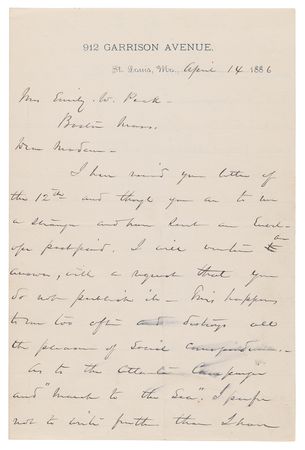 912 GARRISON AVENUE.
St. Louis, Mo., April 14 1886
Mrs Emily W. Peck -
Boston Mass.
Dear Madam -
I have rec'd your letter of
the 12th and though you are to me
a stranger and have sent an Envel-
ope postpaid. I will venture an
answer, with a request that you
do not publish it - This happens
to me too often and destroys all
the pleasure of Social Correspondence -
as to the Atlanta Campaign
and "March to the Sea": I prefer
not to write further than I have